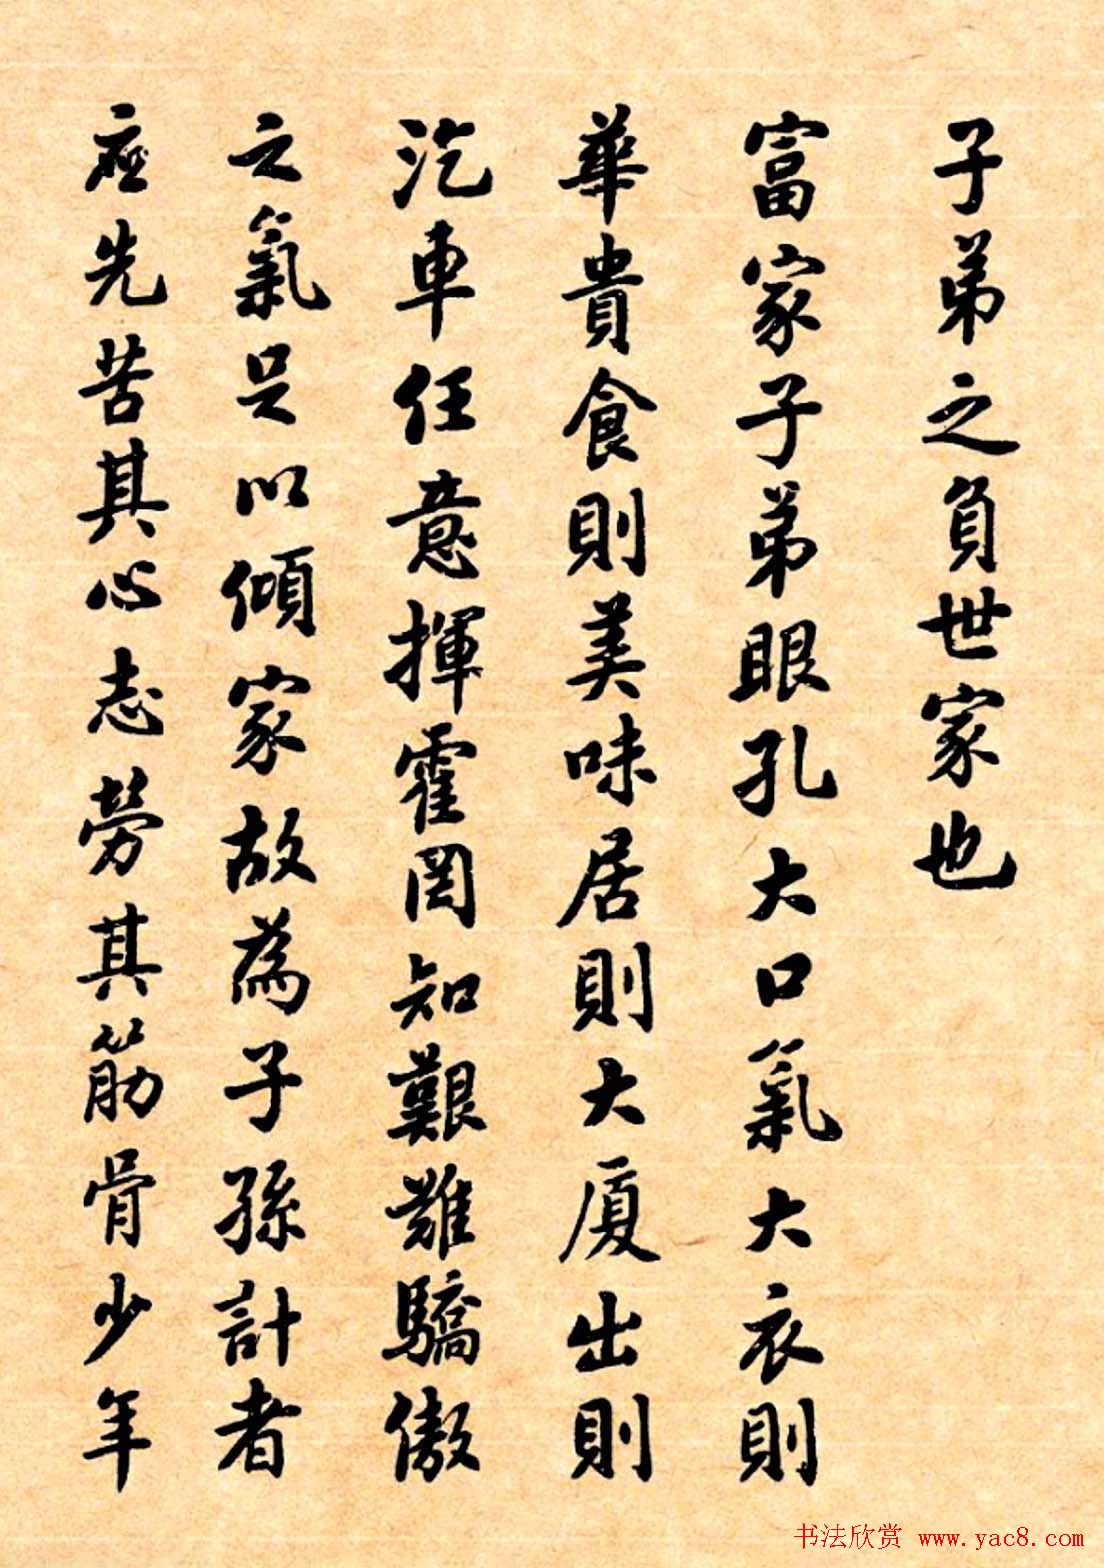 子弟之負世家也
富家子弟眼孔大口氣大衣則
華貴食則美味居則大廈出則
汽車任意揮霍罔知艱難驕傲
之氣足以傾家故為子孫計者
應先苦其心志勞其筋骨少年
书法欣赏 www.yac8.com